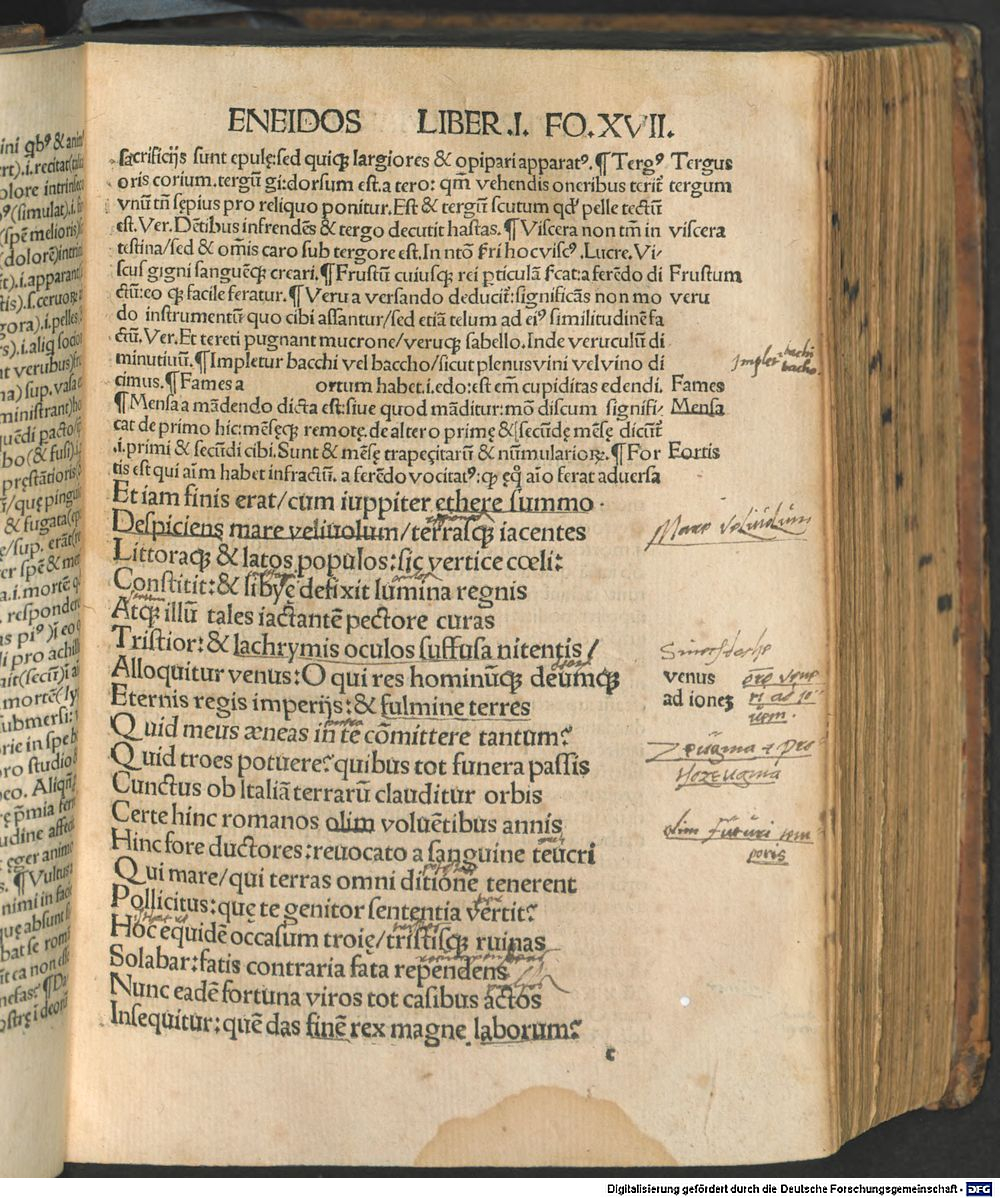 ENEIDOS LIBER .I. FO. XVII.
sacrificijs sunt epulę: sed quiqꝫ largiores & opipari apparatꝰ. ¶ Tergꝰ Tergus
oris corium. tergū gi: dorsum est. a tero: qm̄ vehendis oneribus terit̄ tergum
vnū tn̄ sępius pro reliquo ponitur. Est & tergū scutum qd' pelle tectū
est. Ver. Dētibus infrendēs & tergo decutit hastas. ¶ Viscera non tm̄ in viscera
testina/sed & om̄is caro sub tergore est. In ntō fri hoc viscꝰ. Lucre. Vi-
scus gigni sanguēqꝫ creari. ¶ Frustū cuiusqꝫ rei pticulā fcat: a ferēdo di Frustum
ctū: eo qꝫ facile feratur. ¶ Veru a versando deducit̄: significās non mo veru
do instrumentū quo cibi assantur/sed etiā telum ad eiꝰ similitudinē fa
ctū. Ver. Et tereti pugnant mucrone/veruqꝫ sabello. Inde veruculū di
minutiuū. ¶ Impletur bacchi vel baccho/sicut plenus vini vel vino di
Implet bachi
bacho.
cimus. ¶ Fames a ortum habet. i. edo: est em̄ cupiditas edendi. Fames
¶ Mensa a mādendo dicta est: siue quod māditur: mō discum signifi- Mensa
cat de primo hic: mēsęqꝫ remotę. de altero primę & secūdę mēsę dicūt̄
.i. primi & secūdi cibi. Sunt & mēsę trapeçitarū & nūmulariorꝝ. ¶ For Fortis
tis est qui aīm habet infractū. a ferēdo vocitatꝰ: qꝫ ęq̄ aīo ferat aduersa
Et iam finis erat/cum iuppiter ethere summo
Despiciens mare veliuolum/terrasqꝫ iacentes
Mare veliuolum
Littoraqꝫ & latos populos: sic vertice cœli:
Constitit: & libye defixit lumina regnis
Atqꝫ illū tales iactantē pectore curas
Tristior: & lachrymis oculos suffusa nitentis/
Alloquitur venus: O qui res hominūqꝫ deumqꝫ venus
Eternis regis imperijs: & fulmine terres ad ioneꝫ
Quid meus æneas in te cōmittere tantum?
Quid troes potuere? quibus tot funera passis
Zeugma & pro
Hozeugma
Cunctus ob Italiā terrarū clauditur orbis
Certe hinc romanos olim voluētibus annis
olim futuri tem
poris
Hinc fore ductores: reuocato a sanguine teucri
Qui mare/qui terras omni ditione tenerent
Pollicitus: quę te genitor sententia vertit?
Hoc equidē occasum troię/tristisqꝫ ruinas
Solabar: fatis contraria fata rependens
Nunc eadē fortuna viros tot casibus actos
Insequitur: quē das finē rex magne laborum?
c
Digitalisierung gefördert durch die Deutsche Forschungsgemeinschaft - DFG